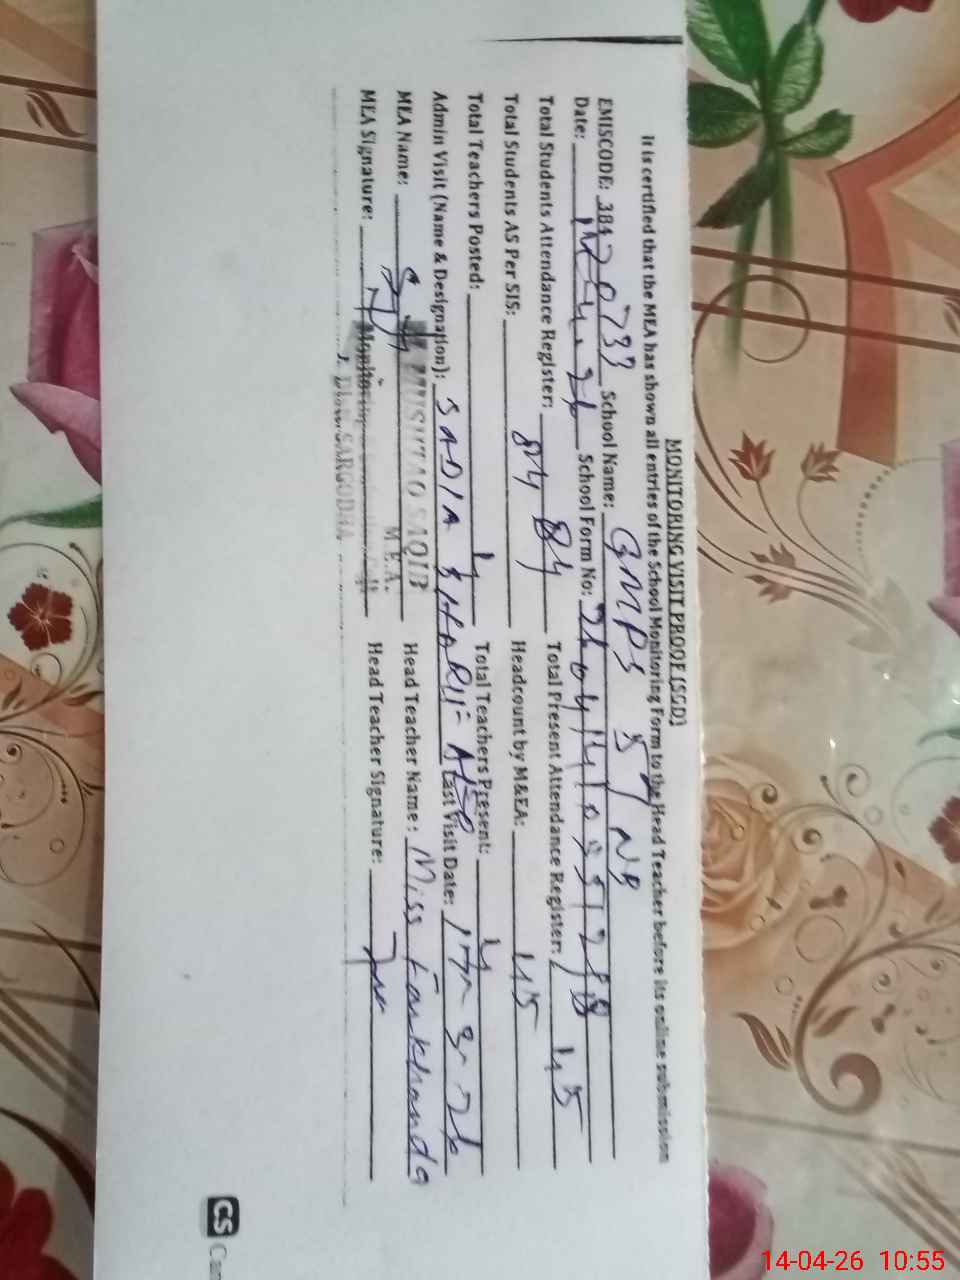 MONITORING VISIT PROOF (SGD)
It is certified that the MEA has shown all entries of the School Monitoring Form to the Head Teacher before its online submission
EMISCODE: 38420733 School Name: GMPS 57 NB
Date: 14.4.26 School Form No:
Total Students Attendance Register: 84 Total Present Attendance Register: 45
Total Students AS Per SIS: 84 Headcount by M&EA: 45
Total Teachers Posted: 4 Total Teachers Present: 4
Admin Visit (Name & Designation): SADIA Last Visit Date: 3-26
MEA Name: MUSHTAQ SAQIB Head Teacher Name: Miss Farkhanda
M.E.A.
MEA Signature: Monitoring Head Teacher Signature:
SARGODHA
CS
14-04-26 10:55